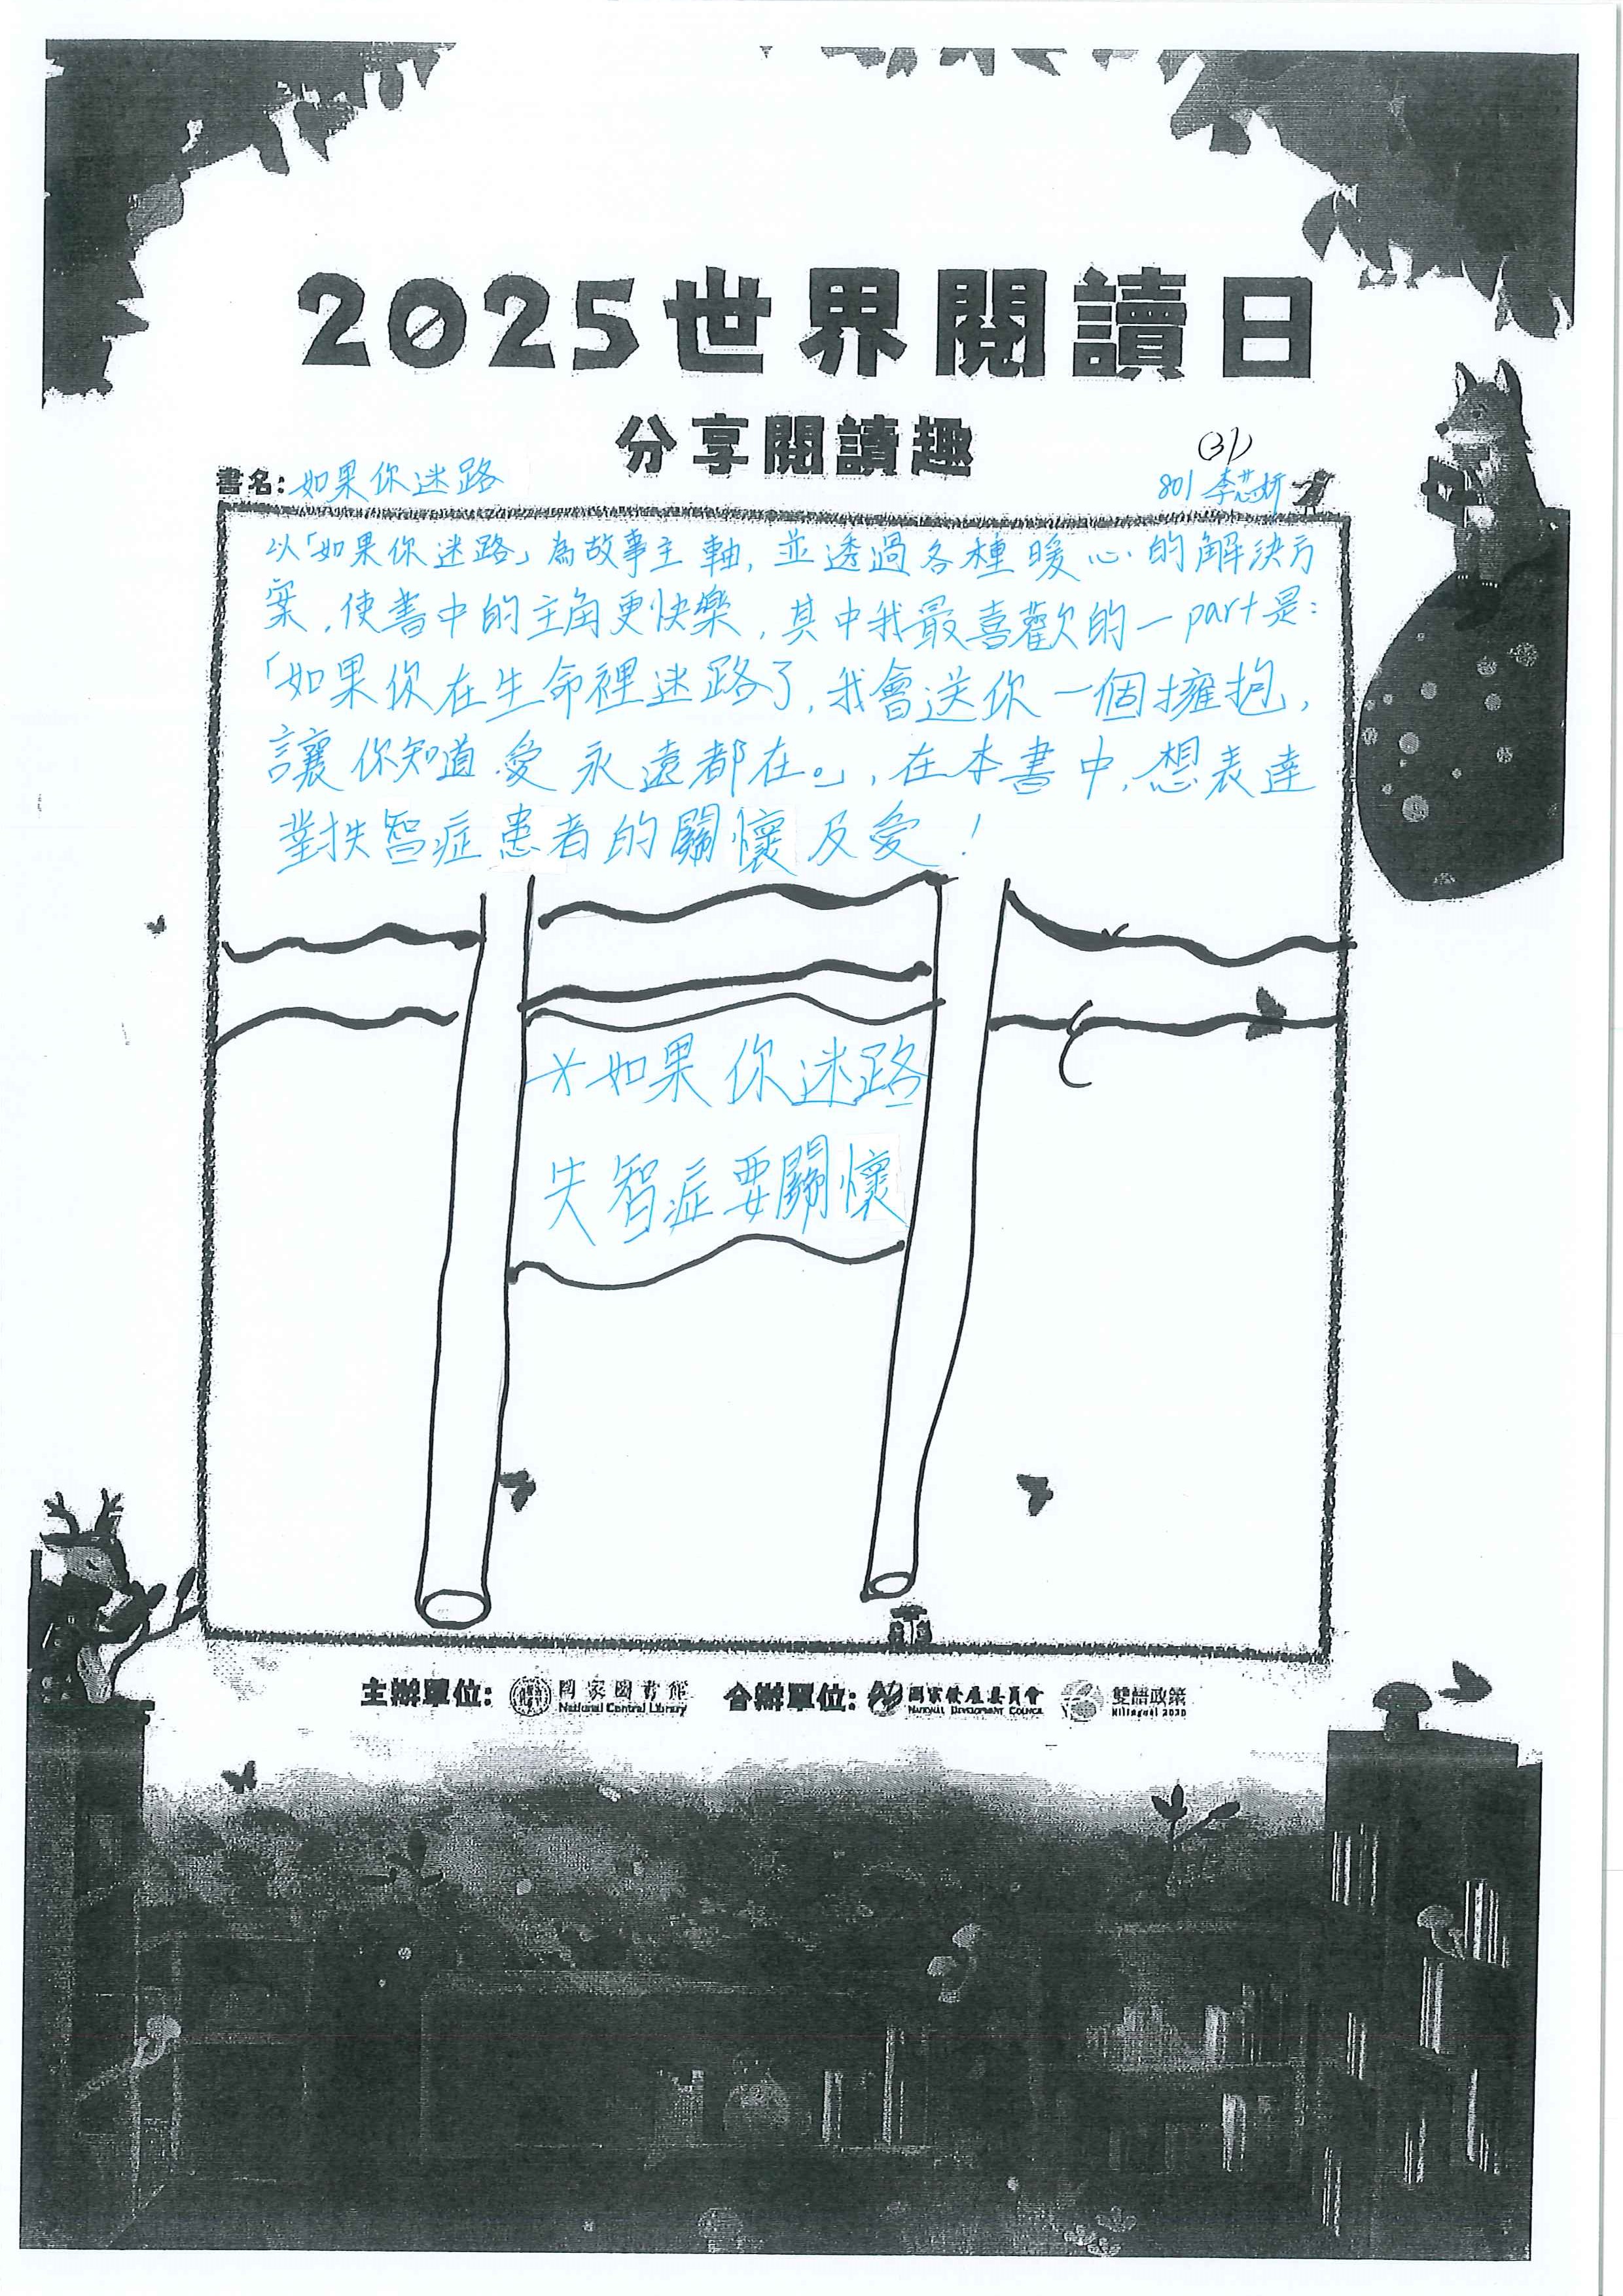 2025世界閱讀日
分享閱讀趣
(31)
書名:如果你迷路
801 李芯妡
以「如果你迷路」為故事主軸,並透過各種暖心的解決方
案,使書中的主角更快樂,其中我最喜歡的一part是:
「如果你在生命裡迷路了,我會送你一個擁抱,
讓你知道,愛永遠都在。」,在本書中,想表達
對失智症患者的關懷及愛!
*如果你迷路
失智症要關懷
主辦單位: 國家圖書館 合辦單位: 國家發展委員會 雙語政策
National Central Library NATIONAL DEVELOPMENT COUNCIL Bilingual 2030